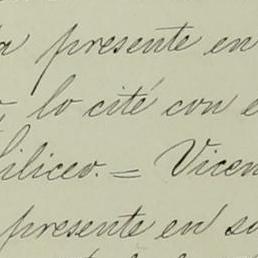 presente en
lo cité con
Siliceo. = Vicen
presente en su